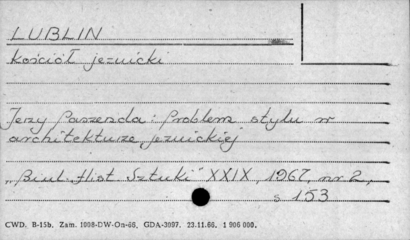 LUBLIN
Kościół jezuicki
Jerzy Paszenda: Problem stylu w
architekturze jezuickiej
„Biul. Hist. Sztuki" XXIX, 1967, nr 2,
s 153
CWD. B-15b. Zam. 1908-DW-On-66. GDA-3097. 23.11.66. 1 906 000.